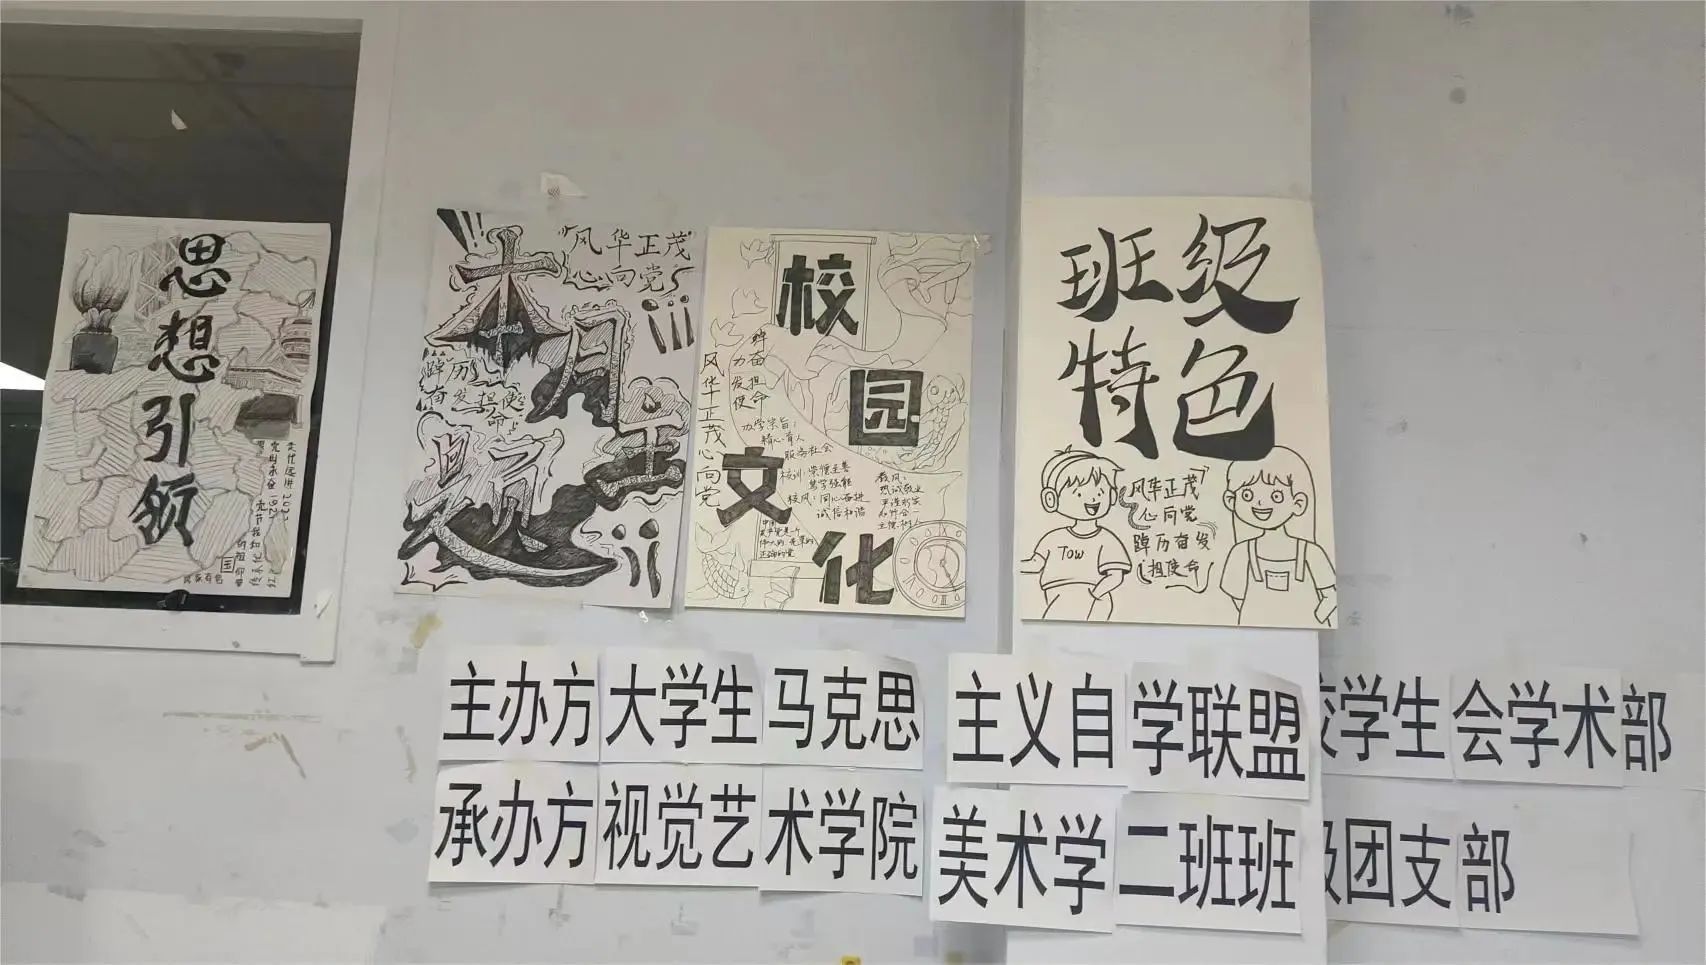 思想引领
本月主题
"风华正茂
心向党"
踔厉
奋发担使
命
校园文化
踔厉
奋发担
使命
风华正茂心向党
办学宗旨:
精心育人
服务社会
校训:崇德至善
笃学强能
校风:同心奋进
诚信和谐
教风:
班级
特色
风华正茂
心向党
踔厉奋发
担使命
Tow
主办方大学生马克思主义自学联盟校学生会学术部
承办方视觉艺术学院美术学二班班级团支部